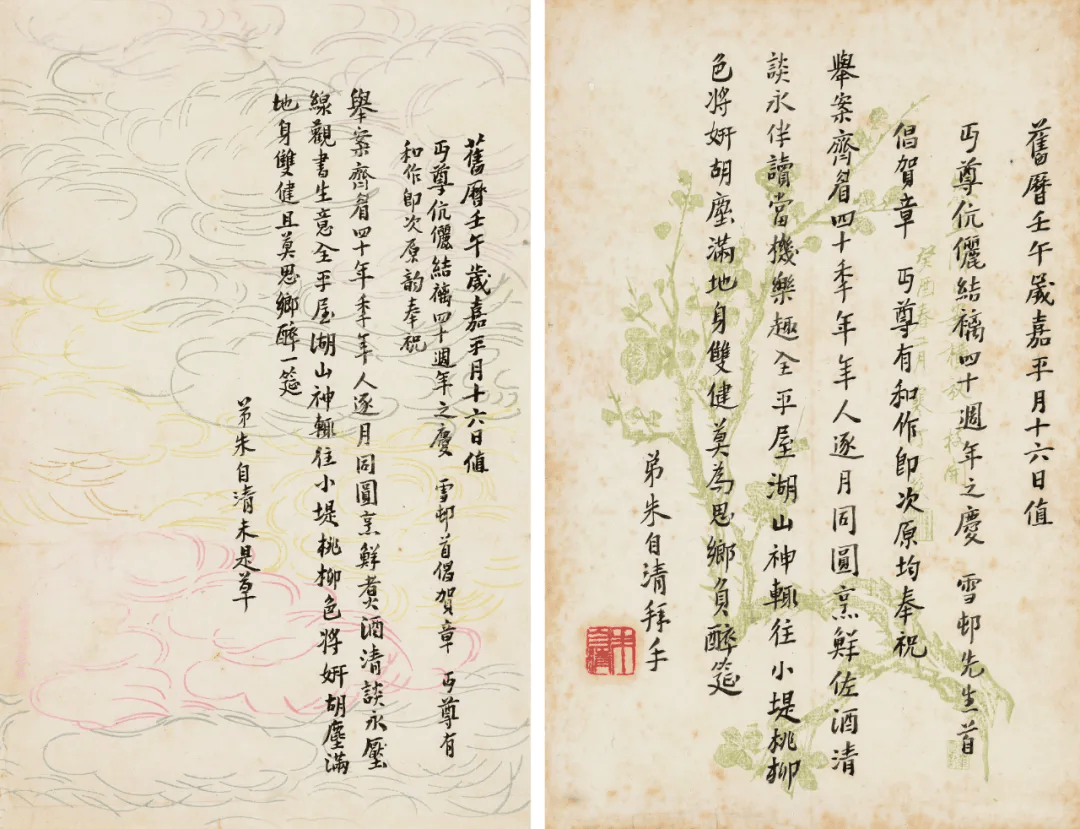 舊曆壬午歲嘉平月十六日值
丏尊伉儷結褵四十週年之慶　雪邨首倡賀章　丏尊有
和作即次原韵奉祝
舉案齊眉四十年季年人逐月同圓烹鮮煮酒清談永壓
線觀書生意全平屋湖山神輒往小堤桃柳色將妍胡塵滿
地身雙健且莫思鄉醉一筵
弟朱自清未是草
舊曆壬午歲嘉平月十六日值
丏尊伉儷結褵四十週年之慶　雪邨先生首
倡賀章　丏尊有和作即次原均奉祝
舉案齊眉四十季年年人逐月同圓烹鮮佐酒清
談永伴讀當機樂趣全平屋湖山神輒往小堤桃柳
色將妍胡塵滿地身雙健莫為思鄉負醉筵
弟朱自清拜手